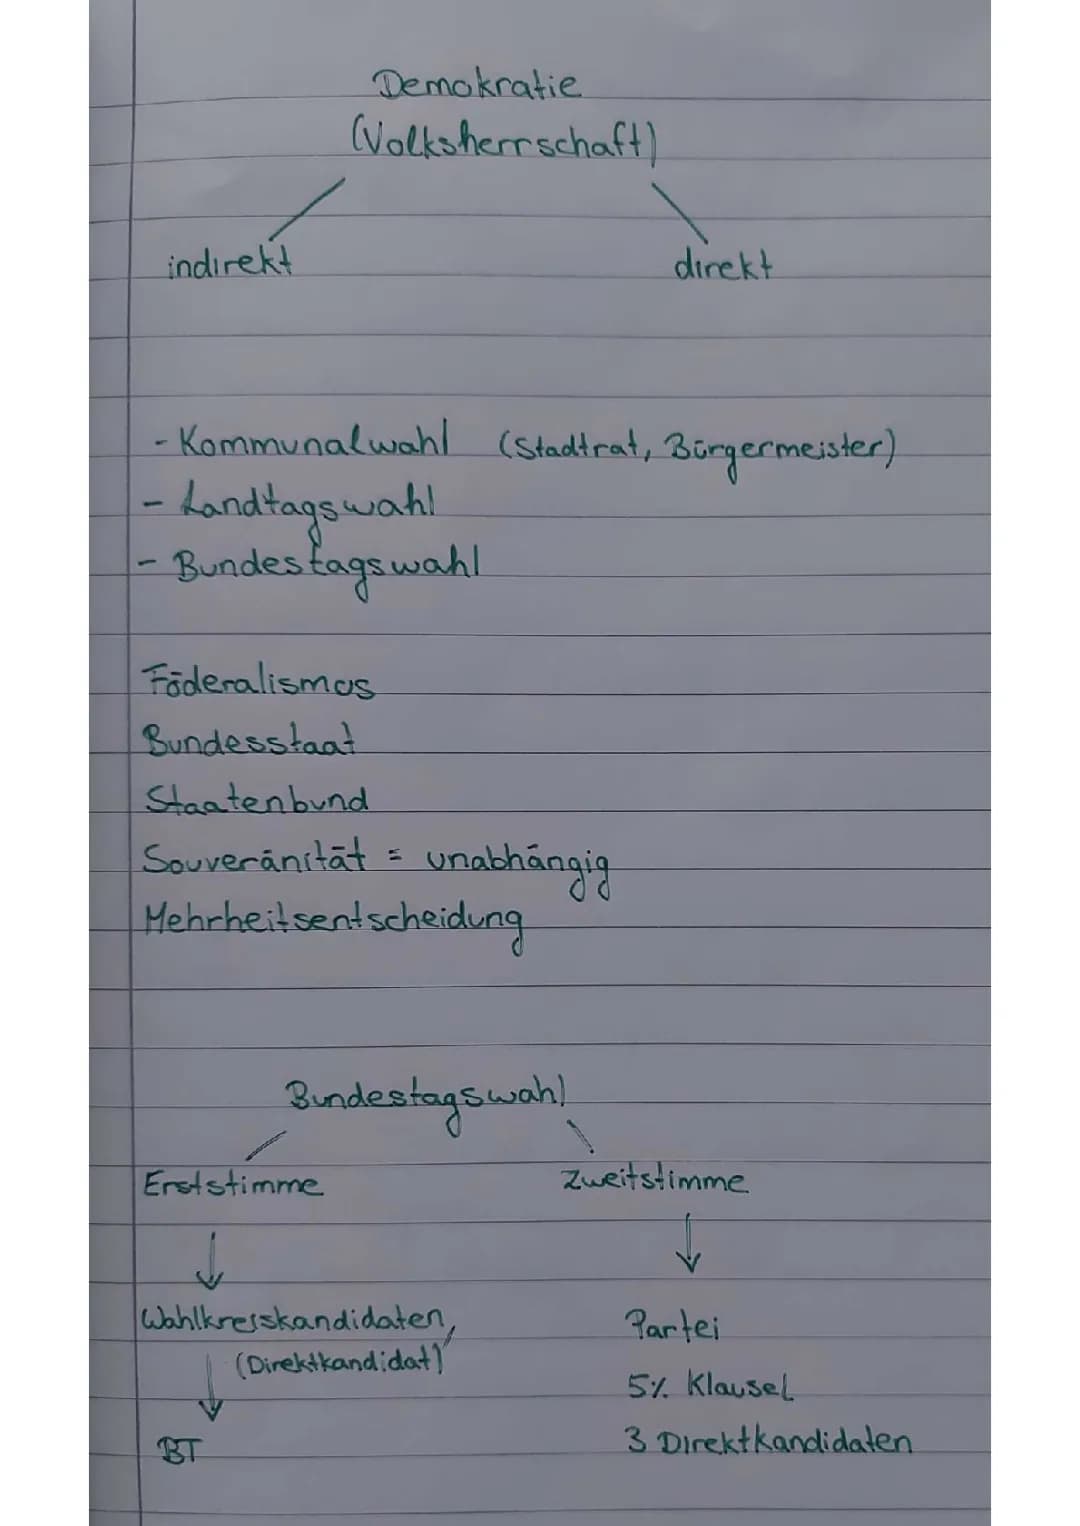 Demokratie
(Volksherrschaft)
indirekt direkt
- Kommunalwahl (Stadtrat, Bürgermeister)
- Landtagswahl
- Bundestagswahl
Föderalismus
Bundesstaat
Staatenbund
Souveränität = unabhängig
Mehrheitsentscheidung
Bundestagswahl
Erststimme Zweitstimme
Wahlkreisskandidaten, Partei
(Direktkandidat)
5% Klausel
BT 3 Direktkandidaten